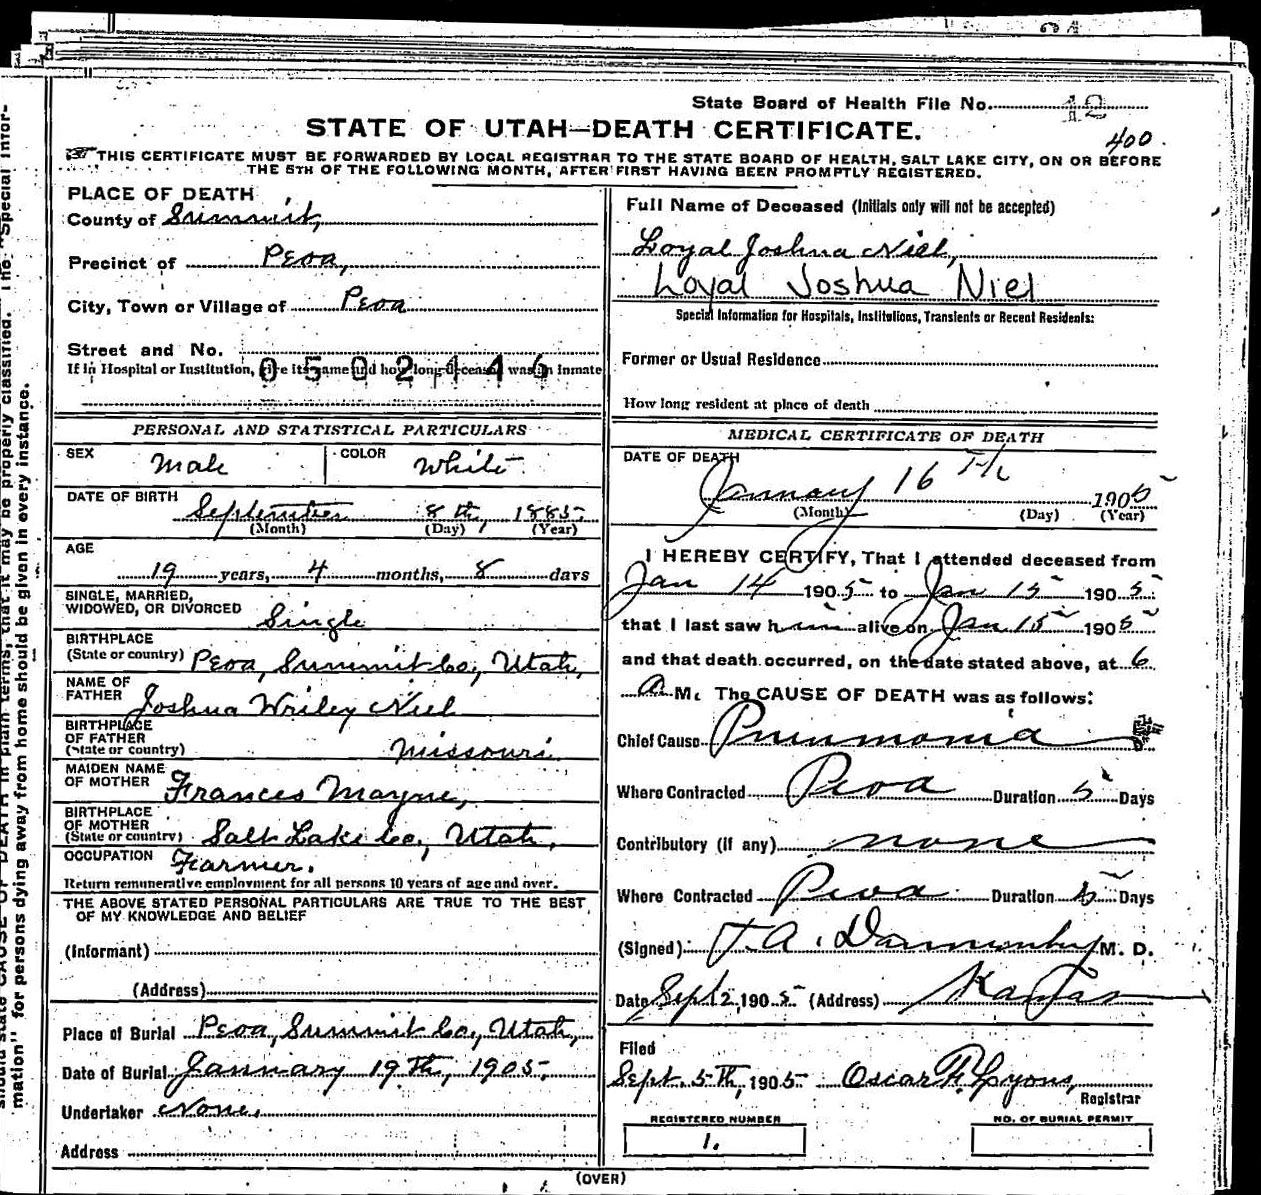 State Board of Health File No. 12
STATE OF UTAH—DEATH CERTIFICATE.
400
THIS CERTIFICATE MUST BE FORWARDED BY LOCAL REGISTRAR TO THE STATE BOARD OF HEALTH, SALT LAKE CITY, ON OR BEFORE
THE 5TH OF THE FOLLOWING MONTH, AFTER FIRST HAVING BEEN PROMPTLY REGISTERED.
PLACE OF DEATH
County of Summit,
Precinct of Peoa,
City, Town or Village of Peoa
Street and No.
If in Hospital or Institution, give its name and how long deceased was an inmate
0502446
PERSONAL AND STATISTICAL PARTICULARS
SEX Male COLOR White
DATE OF BIRTH September 8th, 1885
(Month) (Day) (Year)
AGE
19 years, 4 months, 8 days
SINGLE, MARRIED,
WIDOWED, OR DIVORCED Single
BIRTHPLACE
(State or country) Peoa, Summit Co, Utah,
NAME OF
FATHER Joshua Wriley Niel
BIRTHPLACE
OF FATHER
(State or country) Missouri
MAIDEN NAME
OF MOTHER Frances Mayne,
BIRTHPLACE
OF MOTHER
(State or country) Salt Lake Co, Utah,
OCCUPATION Farmer.
Return remunerative employment for all persons 10 years of age and over.
THE ABOVE STATED PERSONAL PARTICULARS ARE TRUE TO THE BEST
OF MY KNOWLEDGE AND BELIEF
(Informant)
(Address)
Place of Burial Peoa, Summit Co, Utah,
Date of Burial January 19th, 1905,
Undertaker None.
Address
Full Name of Deceased (Initials only will not be accepted)
Loyal Joshua Niel,
Loyal Joshua Niel
Special Information for Hospitals, Institutions, Transients or Recent Residents:
Former or Usual Residence
How long resident at place of death
MEDICAL CERTIFICATE OF DEATH
DATE OF DEATH
January 16 th 1905
(Month) (Day) (Year)
I HEREBY CERTIFY, That I attended deceased from
Jan 14 1905 to Jan 15 1905
that I last saw him alive on Jan 15 1905
and that death occurred, on the date stated above, at 6
A M. The CAUSE OF DEATH was as follows:
Chief Cause Pnumonia
Where Contracted Peoa Duration 5 Days
Contributory (if any) none
Where Contracted Peoa Duration 5 Days
(Signed) M. D.
Date Sept 2 1905 (Address) Kamas
Filed
Sept. 5th, 1905 Oscar F. Lyons,
Registrar
REGISTERED NUMBER
1.
NO. OF BURIAL PERMIT
(OVER)
mation" for persons dying away from home should be given in every instance.